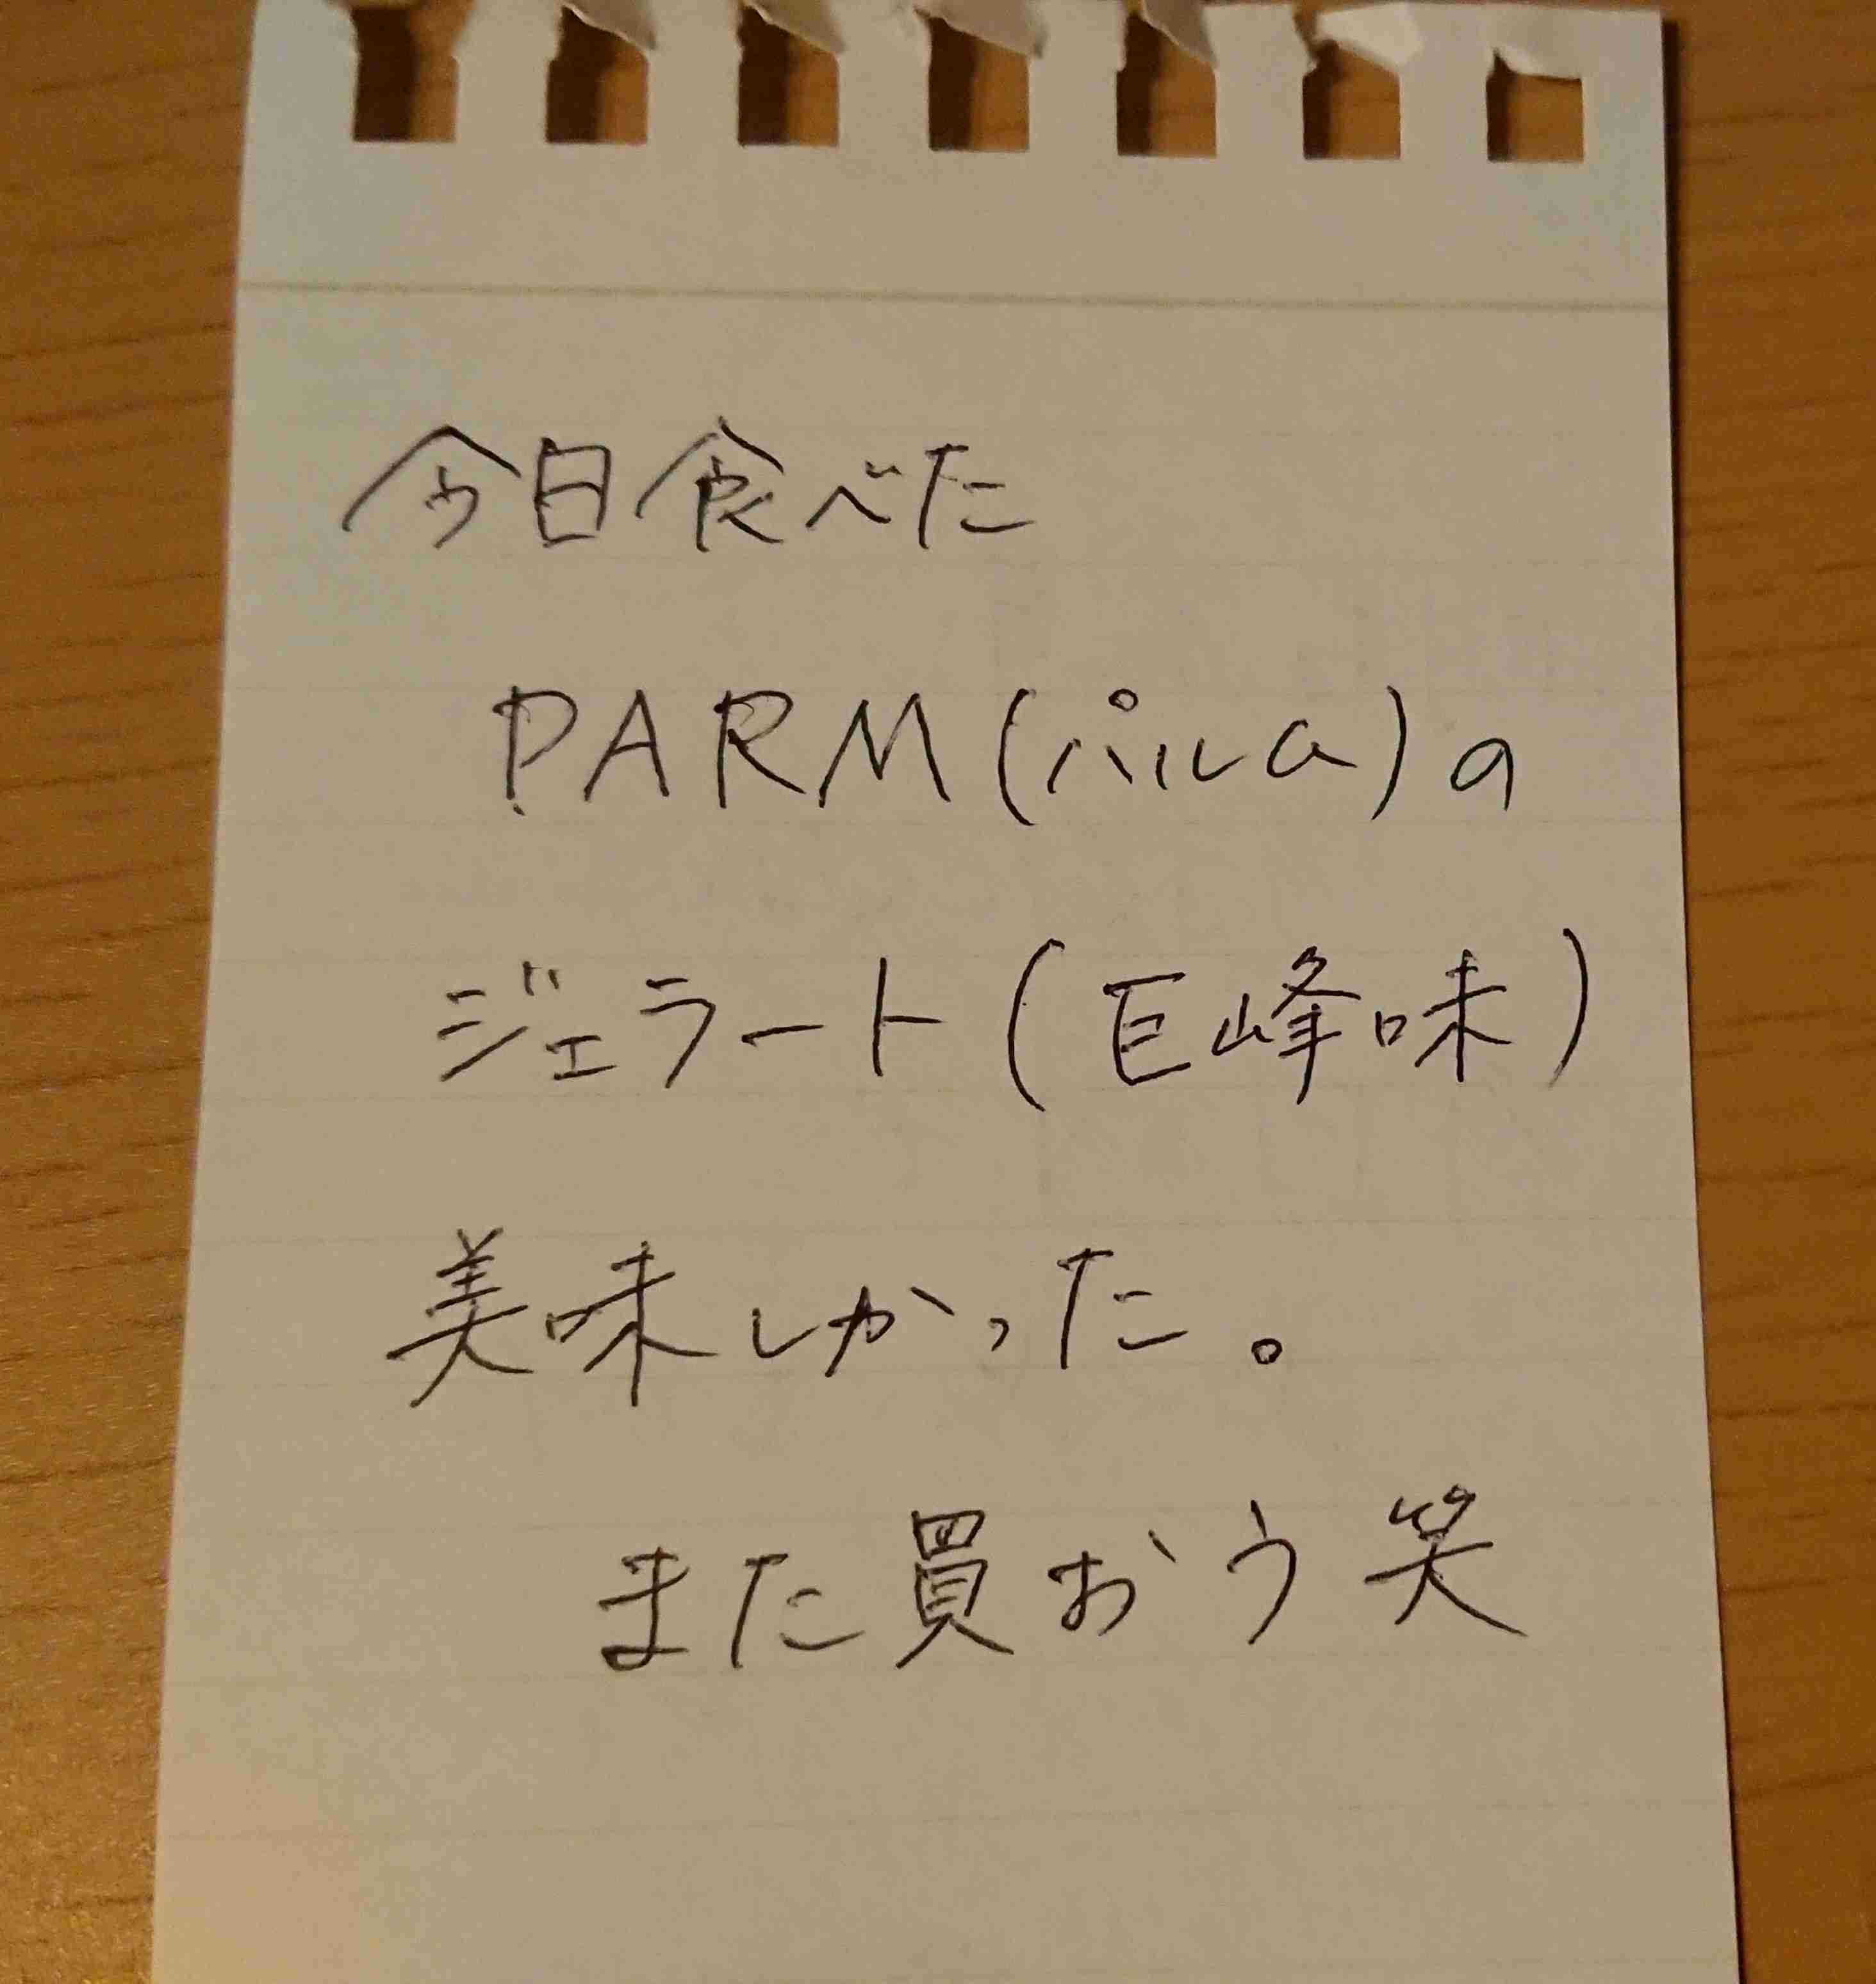 今日食べた
PARM(パルム)の
ジェラート(巨峰味)
美味しかった。
また買おう笑